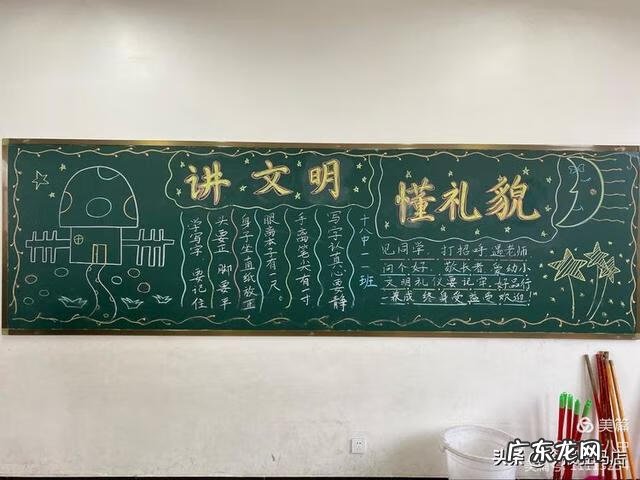 讲文明
懂礼貌
学写字 要记住
头要正 脚要平
身子坐直纸放
眼离本子有一尺
手离笔尖有一寸
写字认真心要静
十八中一班
见同学 打招呼 遇老师
问个好. 敬长者 爱幼小
文明礼仪要记牢.好品行
一养成 终身受益受欢迎!
美篇
广东龙网